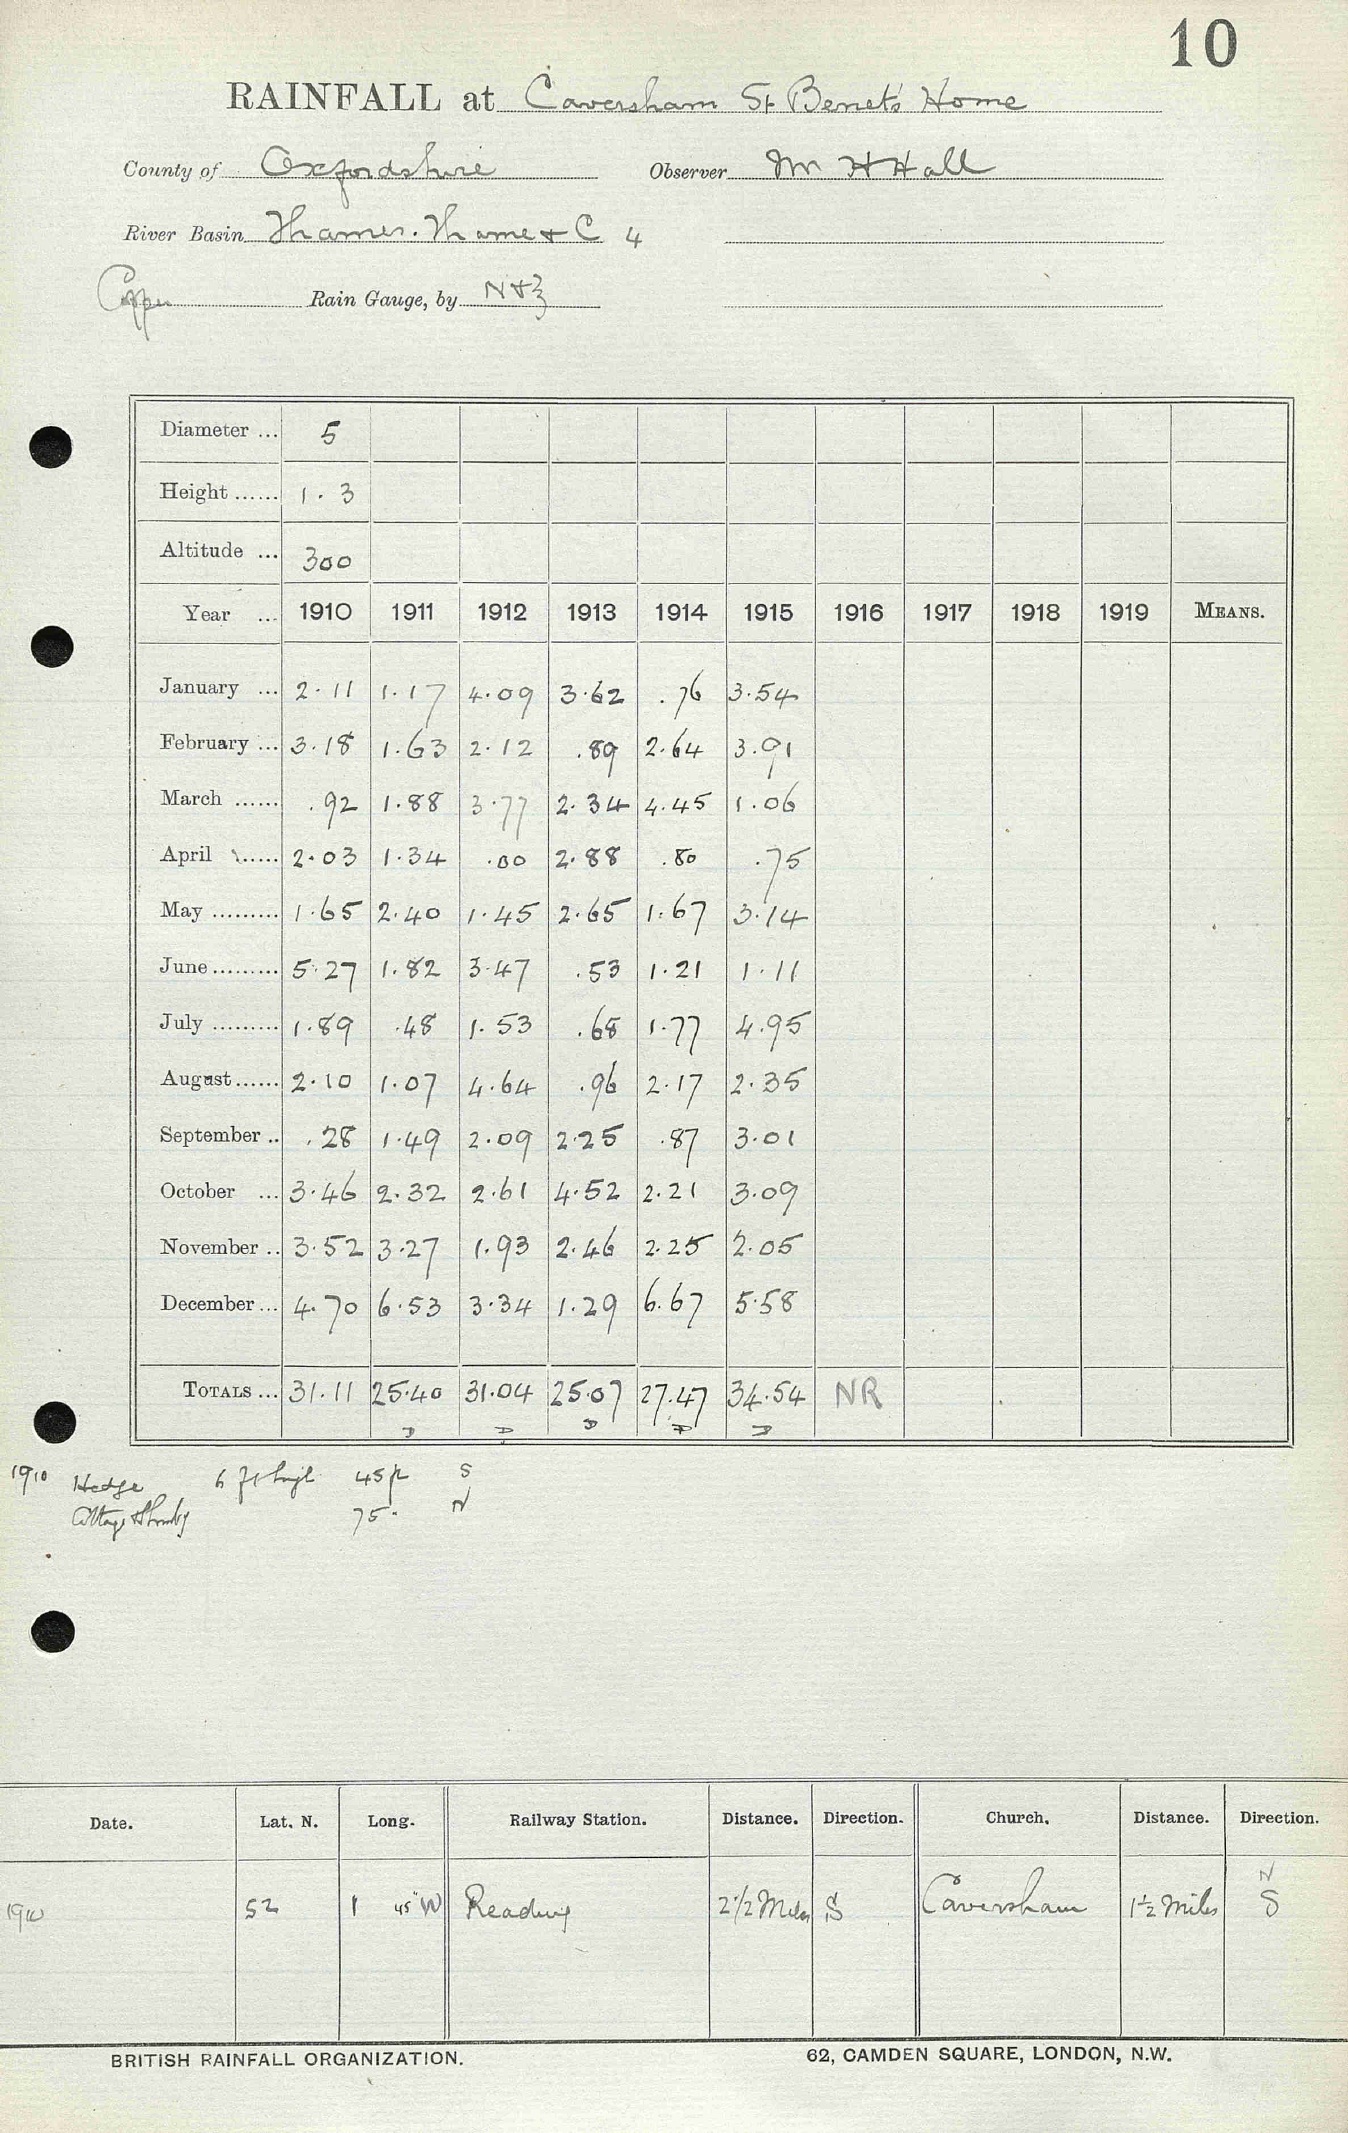 10
RAINFALL at Caversham St Benet's Home
County of Oxfordshire Observer Mr H Hall
River Basin Thames. Thame & C 4
Copper Rain Gauge, by N & Z
Diameter ... 5
Height ...... 1.3
Altitude ... 300
Year ... 1910 1911 1912 1913 1914 1915 1916 1917 1918 1919 MEANS.
January ... 2.11 1.17 4.09 3.62 .76 3.54
February ... 3.18 1.63 2.12 .89 2.64 3.91
March ...... .92 1.88 3.77 2.34 4.45 1.06
April ...... 2.03 1.34 .00 2.88 .80 .75
May ......... 1.65 2.40 1.45 2.65 1.67 3.14
June ......... 5.27 1.82 3.47 .53 1.21 1.11
July ......... 1.89 .48 1.53 .68 1.77 4.95
August ...... 2.10 1.07 4.64 .96 2.17 2.35
September .. .28 1.49 2.09 2.25 .87 3.01
October ... 3.46 2.32 2.61 4.52 2.21 3.09
November .. 3.52 3.27 1.93 2.46 2.25 2.05
December ... 4.70 6.53 3.34 1.29 6.67 5.58
TOTALS ... 31.11 25.40 31.04 25.07 27.47 34.54 NR
D D D D D
1910 Hedge 6 ft high 45 ft S
Cottage & 75. N
Date. Lat. N. Long. Railway Station. Distance. Direction. Church. Distance. Direction.
N
1910 52 1 45" W Reading 2 1/2 Miles S Caversham 1 1/2 Miles S
BRITISH RAINFALL ORGANIZATION. 62, CAMDEN SQUARE, LONDON, N.W.